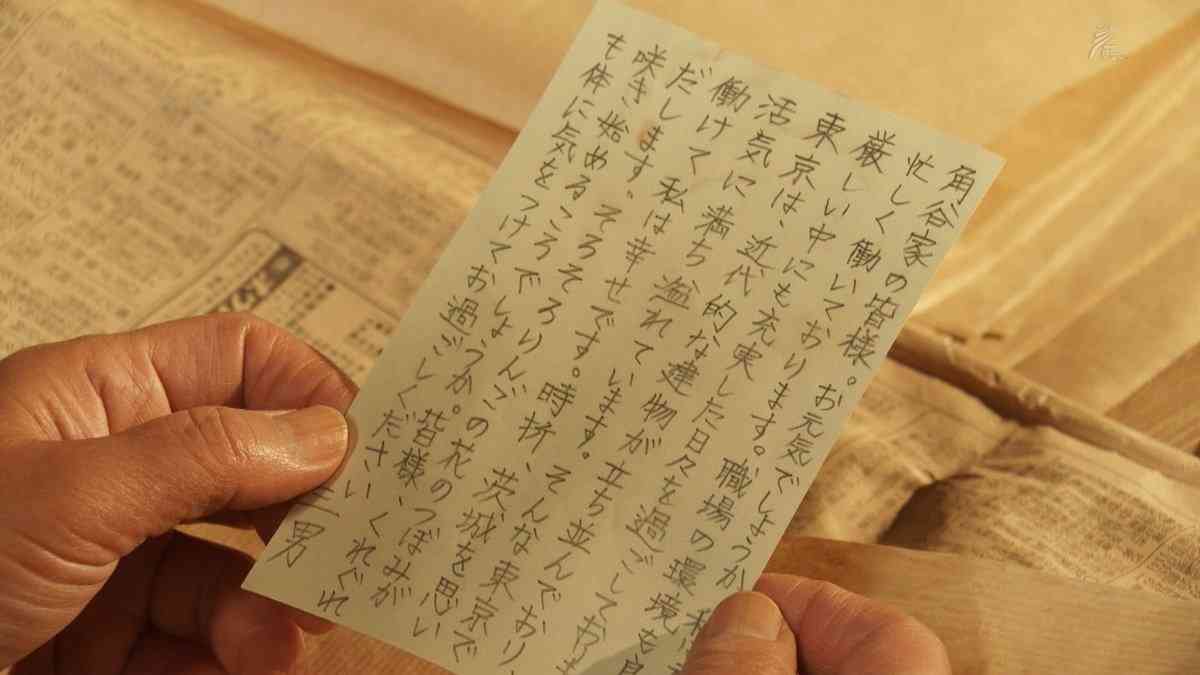 角谷家の皆様。お元気でしょうか 私は
忙しく働いております。職場の環境も良
厳しい中にも充実した日々を過ごしておりま
東京は、近代的な建物が立ち並んでおり、
活気に満ち溢れています。そんな東京で
働けて私は幸せです。時折、茨城を思い
だします、そろそろりんごの花のつぼみが
咲き始めるころでしょうか。皆様、くれぐれ
も体に気をつけてお過ごしください
三男